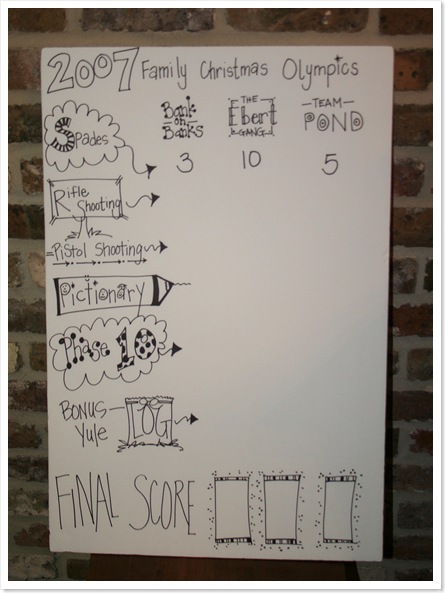 2007 Family Christmas Olympics
Bank on Banks
THE Ebert GANG
TEAM POND
Spades
3 10 5
Rifle Shooting
Pistol Shooting
Pictionary
Phase 10
BONUS Yule LOG
FINAL SCORE